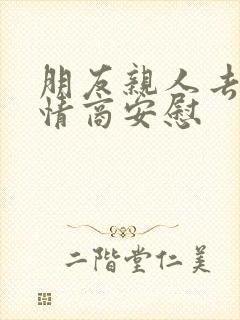 朋友親人去
情商安慰
二階堂仁美